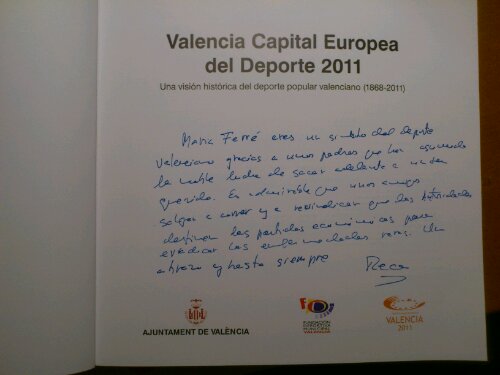 Valencia Capital Europea
del Deporte 2011
Una visión histórica del deporte popular valenciano (1868-2011)
María Ferré eres un símbolo del deporte
valenciano gracias a unos padres que han asumido
la noble lucha de sacar adelante a un ser
querido. Es admirable que unos amigos
salgan a correr y a reivindicar que las autoridades
destinen las partidas económicas para
erradicar las enfermedades raras. Un
abrazo y hasta siempre
AJUNTAMENT DE VALÈNCIA
FUNDACIÓN
DEPORTIVA
MUNICIPAL
VALENCIA
VALENCIA
2011